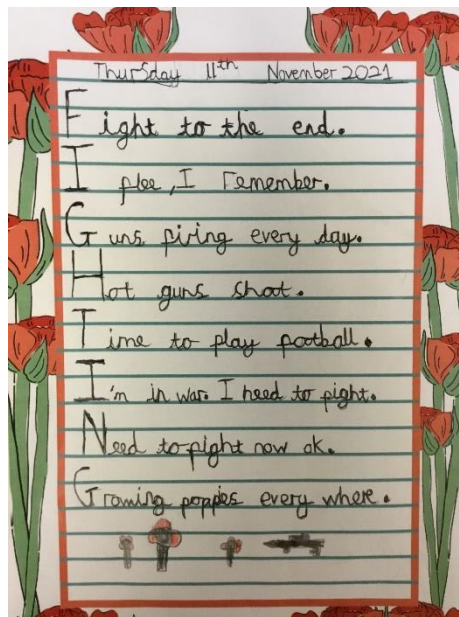 Thursday 11th November 2021
Fight to the end.
I flee, I remember.
Guns firing every day.
Hot guns shoot.
Time to play football.
I'm in war. I need to fight.
Need to fight now ok.
Growing poppies every where.